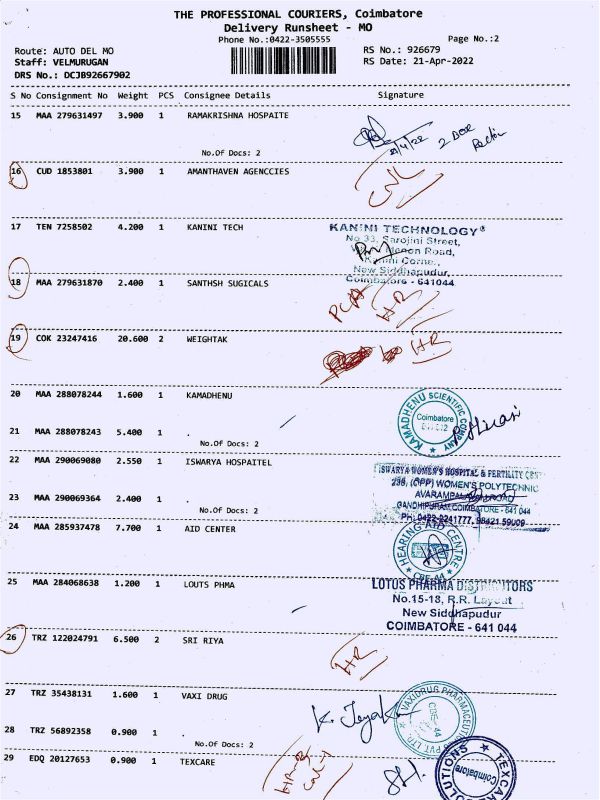 THE PROFESSIONAL COURIERS, Coimbatore
Delivery Runsheet - MO
Phone No.:0422-3505555 Page No.:2
Route: AUTO DEL MO RS No.: 926679
Staff: VELMURUGAN RS Date: 21-Apr-2022
DRS No.: DCJB92667902
S No Consignment No Weight PCS Consignee Details Signature
15 MAA 279631497 3.900 1 RAMAKRISHNA HOSPAITE
No.Of Docs: 2
16 CUD 1853801 3.900 1 AMANTHAVEN AGENCCIES
17 TEN 7258502 4.200 1 KANINI TECH
KANINI TECHNOLOGY
No.33, Sarojini Street,
Menon Road,
Kanini Corner,
New Siddhapudur,
Coimbatore - 641044
18 MAA 279631870 2.400 1 SANTHSH SUGICALS
HR
19 COK 23247416 20.600 2 WEIGHTAK
HR
20 MAA 288078244 1.600 1 KAMADHENU
KAMADHENU SCIENTIFIC COMPANY
Coimbatore
21 MAA 288078243 5.400 1
No.Of Docs: 2
22 MAA 290069080 2.550 1 ISWARYA HOSPAITEL
ISWARYA WOMEN'S HOSPITAL & FERTILITY
236, (OPP) WOMEN'S POLYTECHNIC
23 MAA 290069364 2.400 1
No.Of Docs: 2
GANDHIPURAM, COIMBATORE - 641 044
PH: 0422-2241777, 98421 59009
24 MAA 285937478 7.700 1 AID CENTER
HEARING AID CENTRE
CBE-44
25 MAA 284068638 1.200 1 LOUTS PHMA
LOTUS PHARMA DISTRIBUTORS
No.15-18, R.R. Layout
New Siddhapudur
COIMBATORE - 641 044
26 TRZ 122024791 6.500 2 SRI RIYA
HR
27 TRZ 35438131 1.600 1 VAXI DRUG
VAXIDRUG PHARMACEUTICALS PVT. LTD.
CBE-44
28 TRZ 56892358 0.900 1
No.Of Docs: 2
29 EDQ 20127653 0.900 1 TEXCARE
Coimbatore